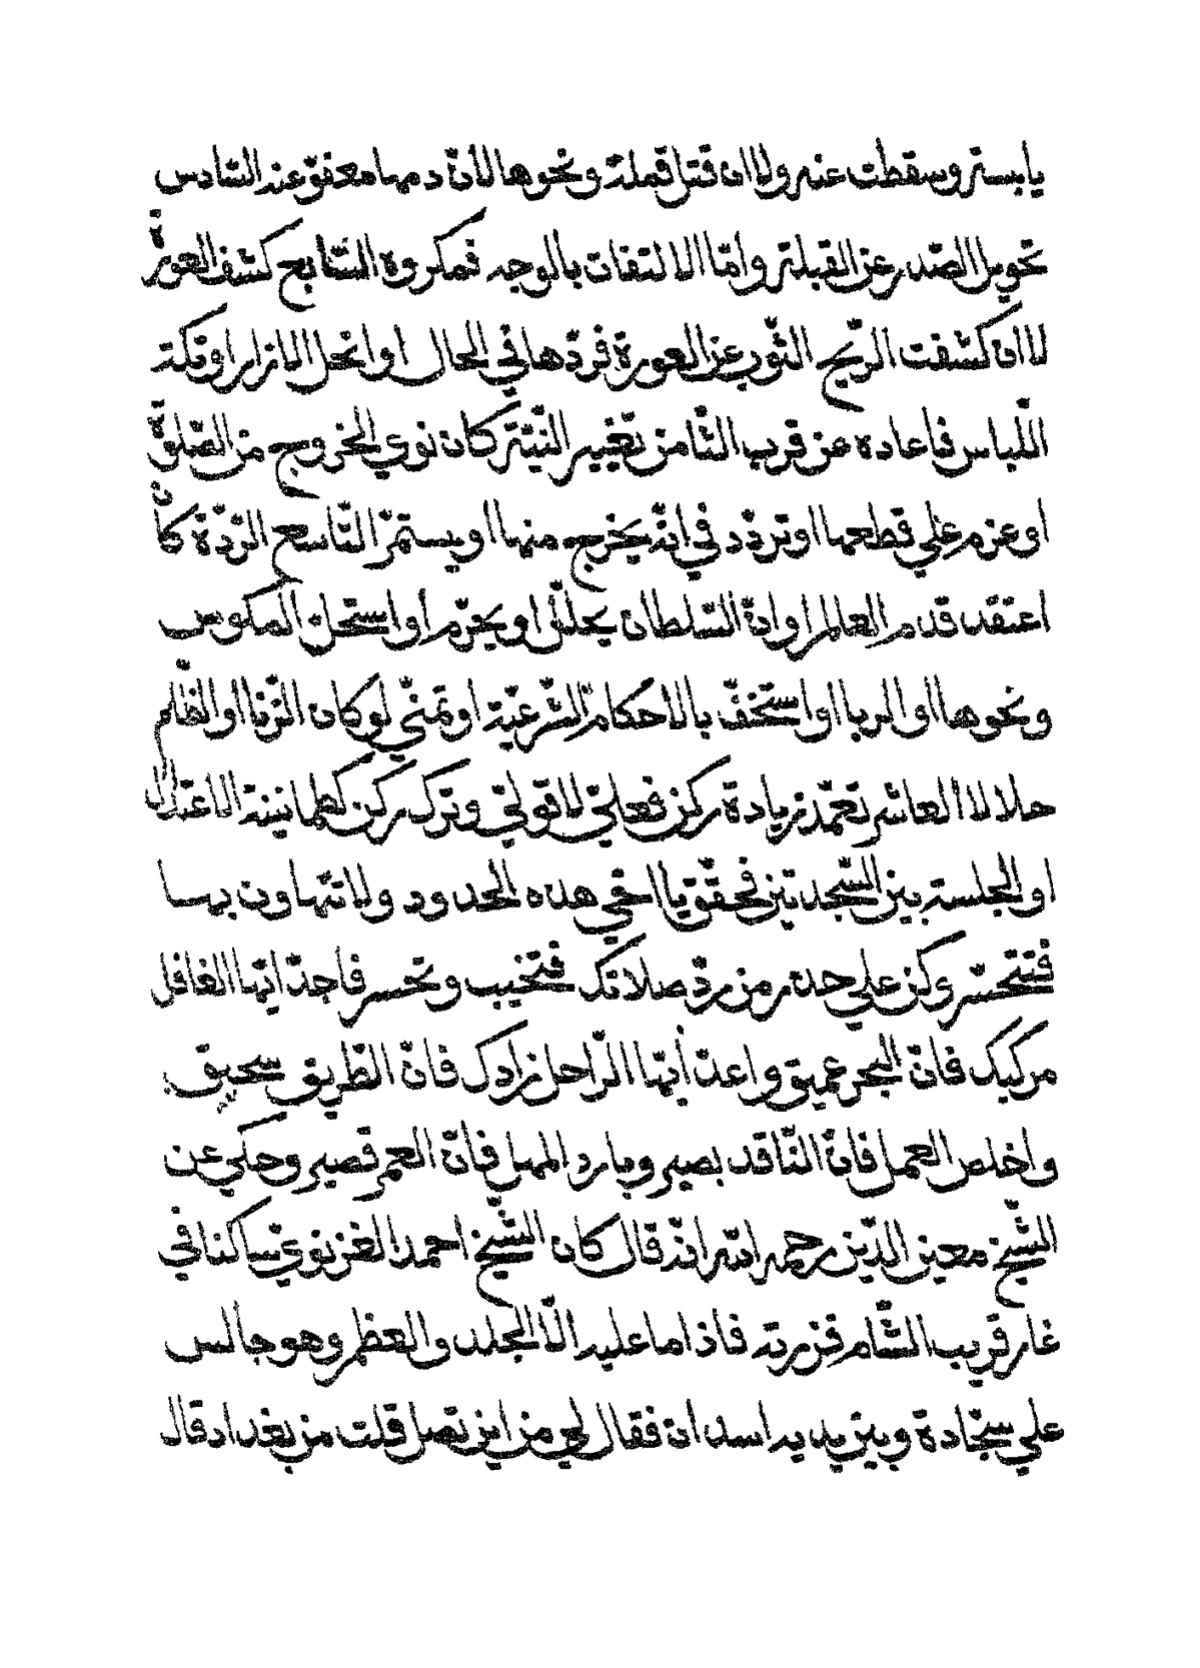 يابسة وسقطت عنه ولا ان قتل قملة ونحوها لأنّ دمها معفوّ عنه السّادس
تحويل الصّدر عن القبلة وامّا الالتفات بالوجه فمكروه السّابع كشف العورة
لا ان كشفت الرّيح الثّوب عن العورة فردّها في الحال او انحل الازار او تكة
اللّباس فاعاده عن قرب الثّامن تغيير النّيّة كان نوي الخروج من الصّلوة
او عزم علي قطعها او تردّد في انّه يخرج منها او يستمرّ التّاسع الرّدّة كأن
اعتقد قدم العالم او انّ السّلطان يحلّل او يحرّم أو استحلّ المكوس
ونحوها او الربا او استخفّ بالاحكام الشّرعيّة او تمنّي لو كان الزّنا او الظّلم
حلالا العاشر تعمّد زيادة ركن فعليّ لا قوليّ وترك ركن كطمانينة الاعتدال
او الجلسة بين السّجدتين فحقّق يا اخي هذه الحدود ولا تتهاون بها
فتتحسّر وكن علي حذر من ردّ صلاتك فتخيب وتخسر فاجدّ ايّها الغافل
مركبك فانّ البحر عميق واعدّ أيّها الرّاحل زادك فانّ الطّريق سحيق
واخلص العمل فانّ النّاقد بصير وبادر المهل فانّ العمر قصير وحكي عن
الشّيخ معين الدّين رحمه الله انّه قال كان الشّيخ احمد الغزنويّ ساكنا في
غار قريب الشّام فزرته فاذا ما عليه الّا الجلد والعظم وهو جالس
علي سجّادة وبين يديه اسدان فقال لي من اين تصل قلت من بغداد قال